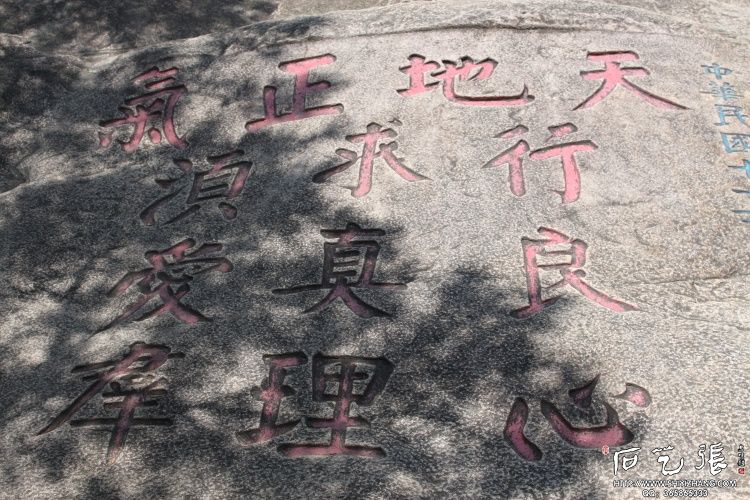 中華民國十二
天地正氣
行良心
求真理
須愛羣
石艺張
HTTP://WWW.SHIYIZHANG.COM
QQ: 365865333